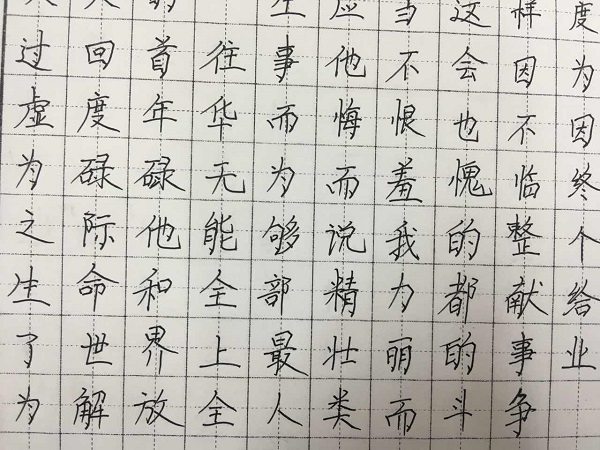 生应当这样度
过回首往事他不会因为
虚度年华而悔恨也不因
为碌碌无为而羞愧临终
之际他能够说我的整个
生命和全部精力都献给
了世界上最壮丽的事业
为解放全人类而斗争